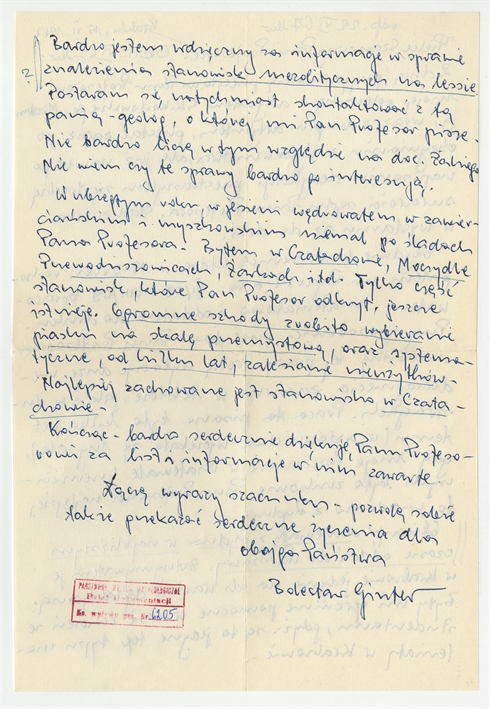 Bardzo jestem wdzięczny za informacje w sprawie
? znalezienia stanowisk mezolitycznych na lessie.
Postaram się natychmiast skontaktować z tą
panią-geolog, o której mi Pan Profesor pisze.
Nie bardzo liczę w tym względzie na doc.
Nie wiem czy te sprawy bardzo go interesują.
W ubiegłym roku, w jesieni wędrowałem w zawier-
ciańskim i myszkowskim niemal po śladach
Pana Profesora. Byłem w Czatachowie, Moczydle
Przewodziszowicach, Żarkach itd. Tylko część
stanowisk, które Pan Profesor odkrył, jeszcze
istnieje. Ogromne szkody zrobiło wybieranie
piasku na skalę przemysłową, oraz systema-
tyczne, od kilku lat, zalesianie nieużytków.
Najlepiej zachowane jest stanowisko w Czata-
chowie.
Kończąc - bardzo serdecznie dziękuję Panu Profeso-
rowi za list i informacje w nim zawarte.
Łączę wyrazy szacunku - pozwolę sobie
także przekazać serdeczne życzenia dla
obojga Państwa
Bolesław Ginter
PAŃSTWOWE MUZEUM ARCHEOLOGICZNE
Dział Dokumentacji
Ks. wpływu poz. Nr. 6205